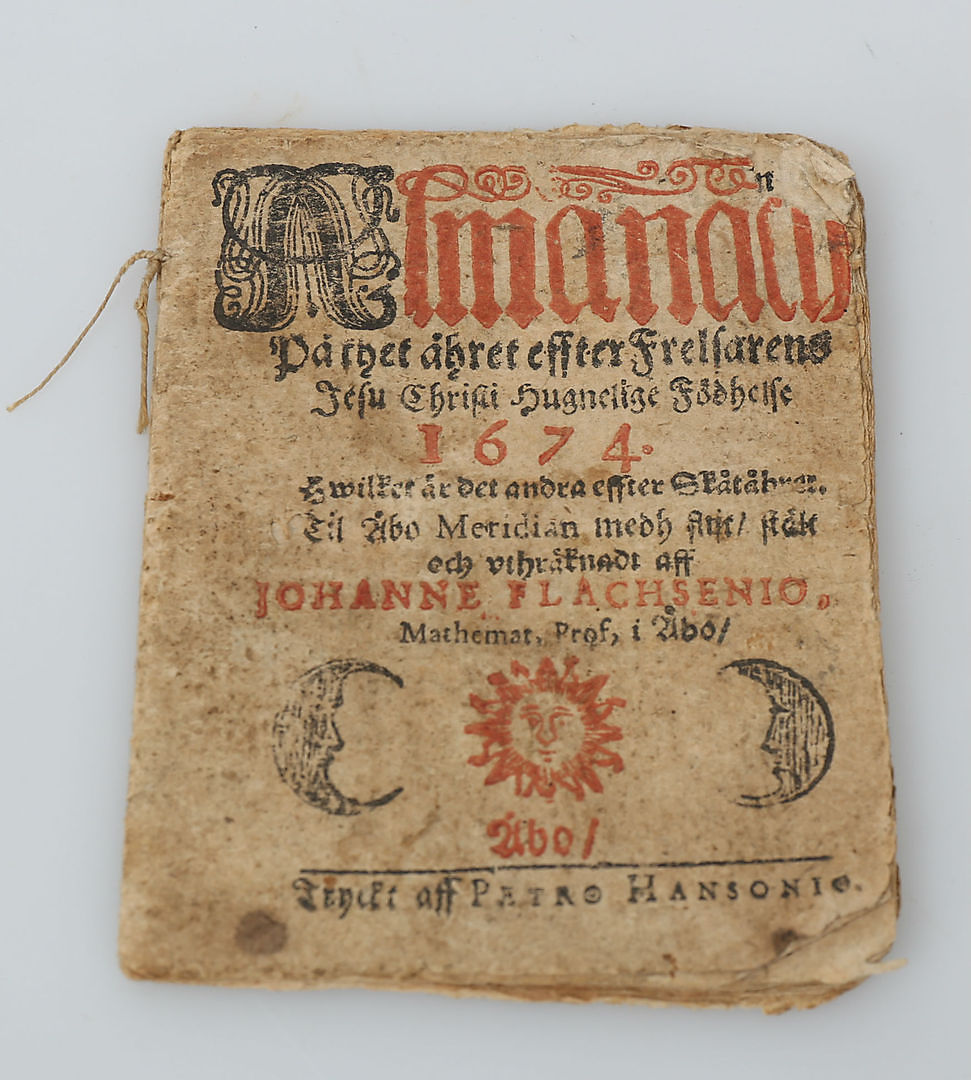 Almanach
På thet åhret effter Frelsarens
Jesu Christi Hugnelige Födhelse
1674.
Hwilket är det andra effter Skåtåhret.
Til Åbo Meridian medh flijt/ stält
och vthräknadt aff
JOHANNE FLACHSENIO,
Mathemat, Prof, i Åbo/
Åbo/
Tryckt aff PETRO HANSONIO.